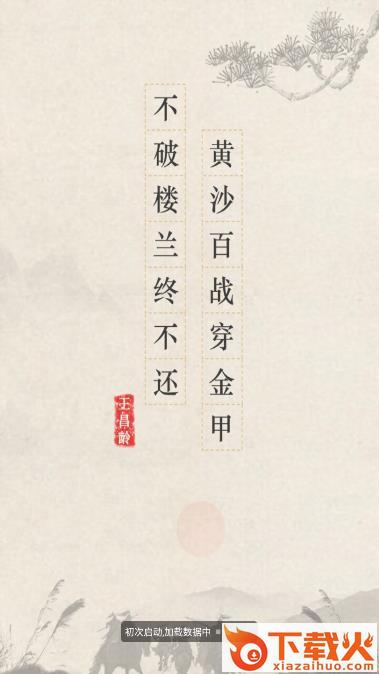 黄沙百战穿金甲
不破楼兰终不还
王昌龄
初次启动,加载数据中
下载火
xiazaihuo.com